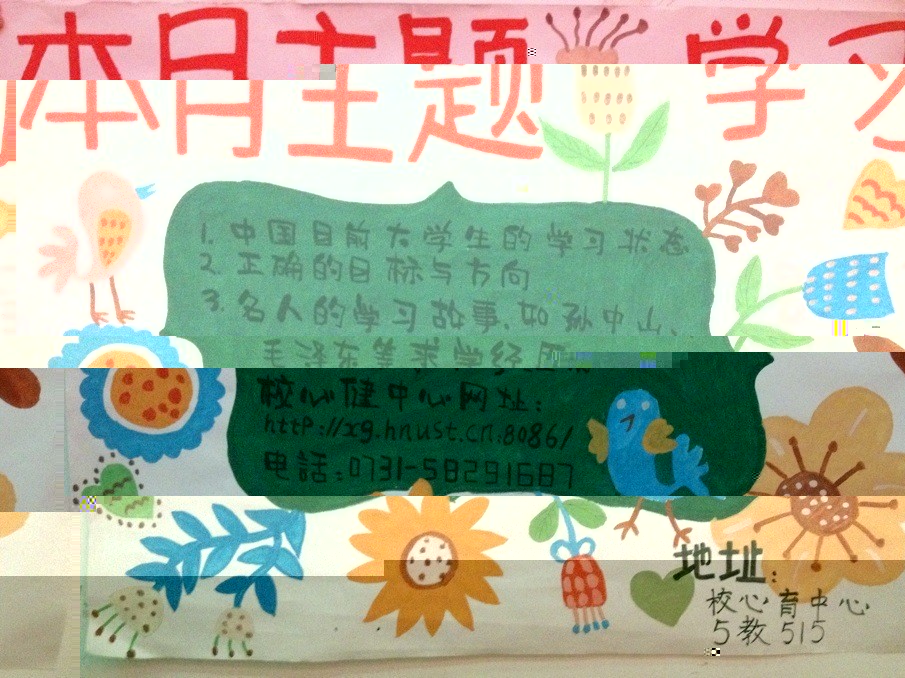 本月主题 学习
1. 中国目前大学生的学习状态
2. 正确的目标与方向
3. 名人的学习故事,如孙中山、
毛泽东等求学经历
校心健中心网址:
http://xg.hnust.cn:8086/
电話:0731-58291687
地址:
校心育中心
5教515